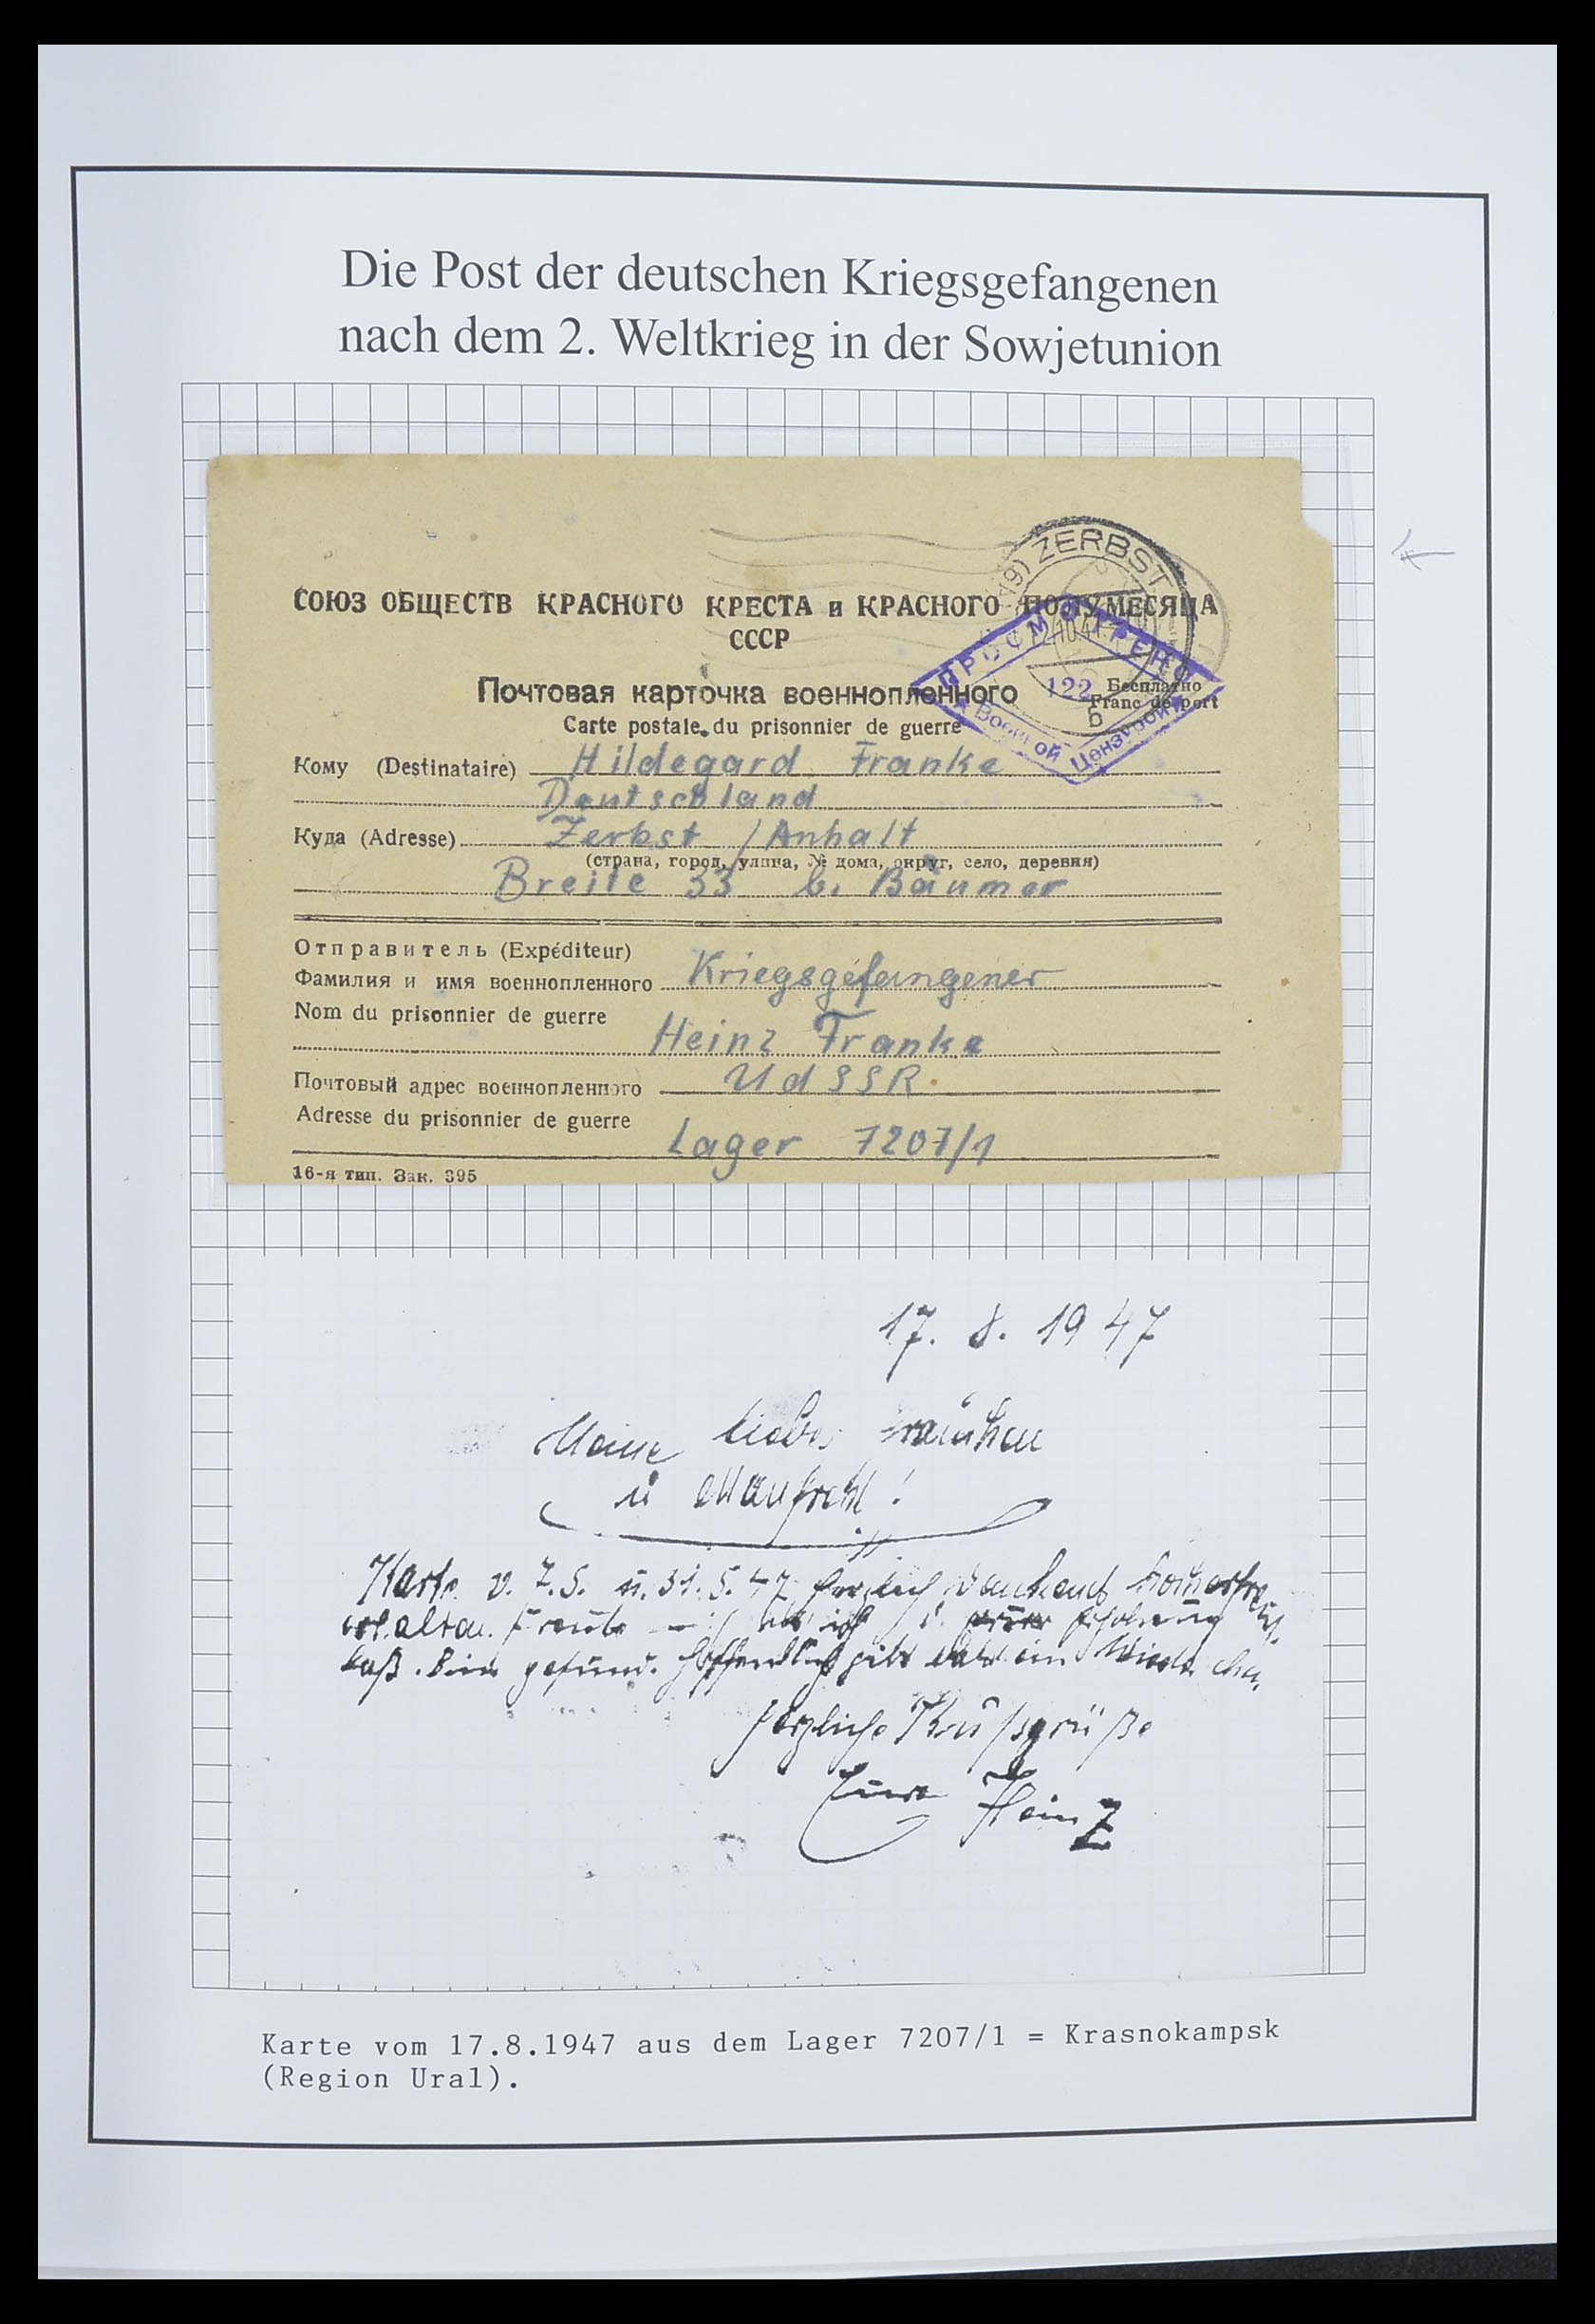 Die Post der deutschen Kriegsgefangenen
nach dem 2. Weltkrieg in der Sowjetunion
(19) ZERBST
СОЮЗ ОБЩЕСТВ КРАСНОГО КРЕСТА и КРАСНОГО ПОЛУМЕСЯЦА
СССР
ПРОСМОТРЕНО
122
Военной Цензурой
b
Почтовая карточка военнопленного
Бесплатно
Franc de port
Carte postale du prisonnier de guerre
Кому (Destinataire) Hildegard Franke
Deutschland
Куда (Adresse) Zerbst / Anhalt
(страна, город, улица, № дома, округ, село, деревня)
Breite 33 b. Bäumer
Отправитель (Expéditeur)
Фамилия и имя военнопленного Kriegsgefangener
Nom du prisonnier de guerre
Heinz Franke
Почтовый адрес военнопленного UdSSR.
Adresse du prisonnier de guerre
Lager 7207/1
16-я тип. Зак. 395
17. 8. 1947
Meine liebe
u Manfred!
Karte v. 7.5. u. 31.5.47 herzlich dankend
erhalten. Freute
Bin gesund. Hoffentlich gibt bald ein
Herzliche Kußgrüße
Euer Heinz
Karte vom 17.8.1947 aus dem Lager 7207/1 = Krasnokampsk
(Region Ural).